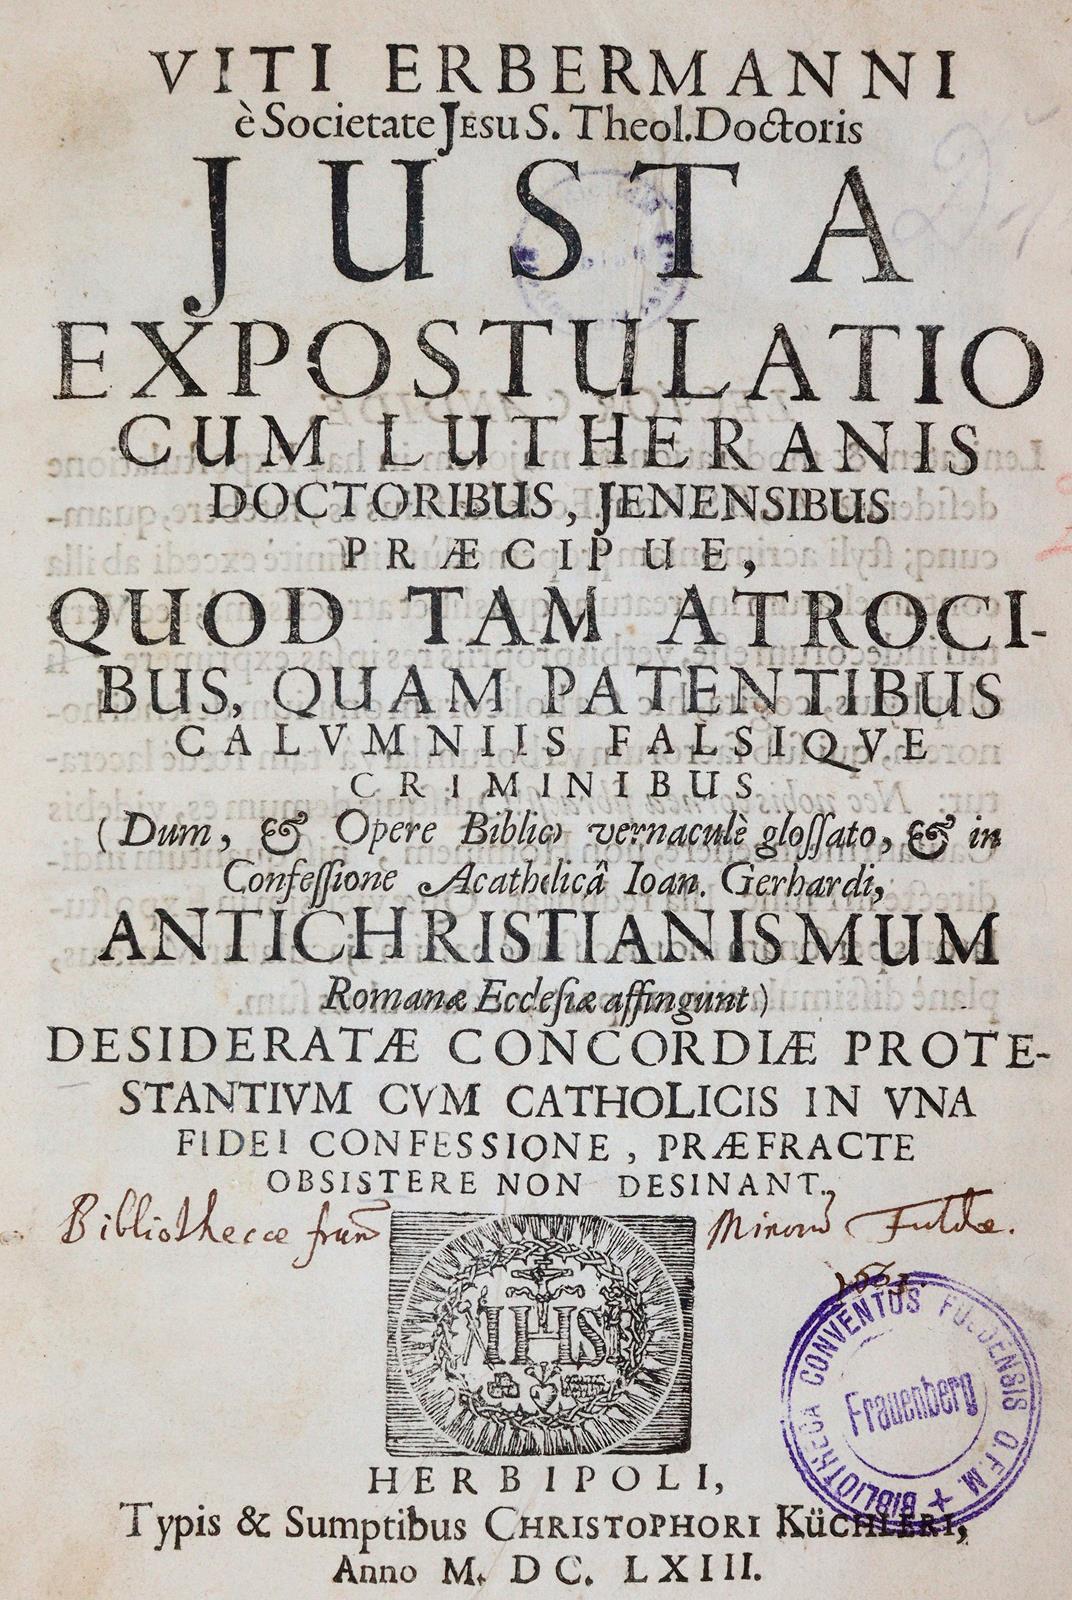 VITI ERBERMANNI
è Societate JESU S. Theol. Doctoris
JUSTA
EXPOSTULATIO
CUM LUTHERANIS
DOCTORIBUS, JENENSIBUS
PRÆCIPUE,
QUOD TAM ATROCI-
BUS, QUAM PATENTIBUS
CALVMNIIS FALSIQVE
CRIMINIBUS
(Dum, & Opere Biblico vernaculè glossato, & in
Confessione Acatholicâ Ioan. Gerhardi,
ANTICHRISTIANISMUM
Romanæ Ecclesiæ affingunt)
DESIDERATÆ CONCORDIÆ PROTE-
STANTIVM CVM CATHOLICIS IN VNA
FIDEI CONFESSIONE, PRÆFRACTE
OBSISTERE NON DESINANT.
Bibliothecæ Minorū Fuldæ.
1663.
IHS
BIBLIOTHECA CONVENTUS FULDENSIS O.F.M.
Frauenberg
HERBIPOLI,
Typis & Sumptibus CHRISTOPHORI KüCHLERI,
Anno M. DC. LXIII.